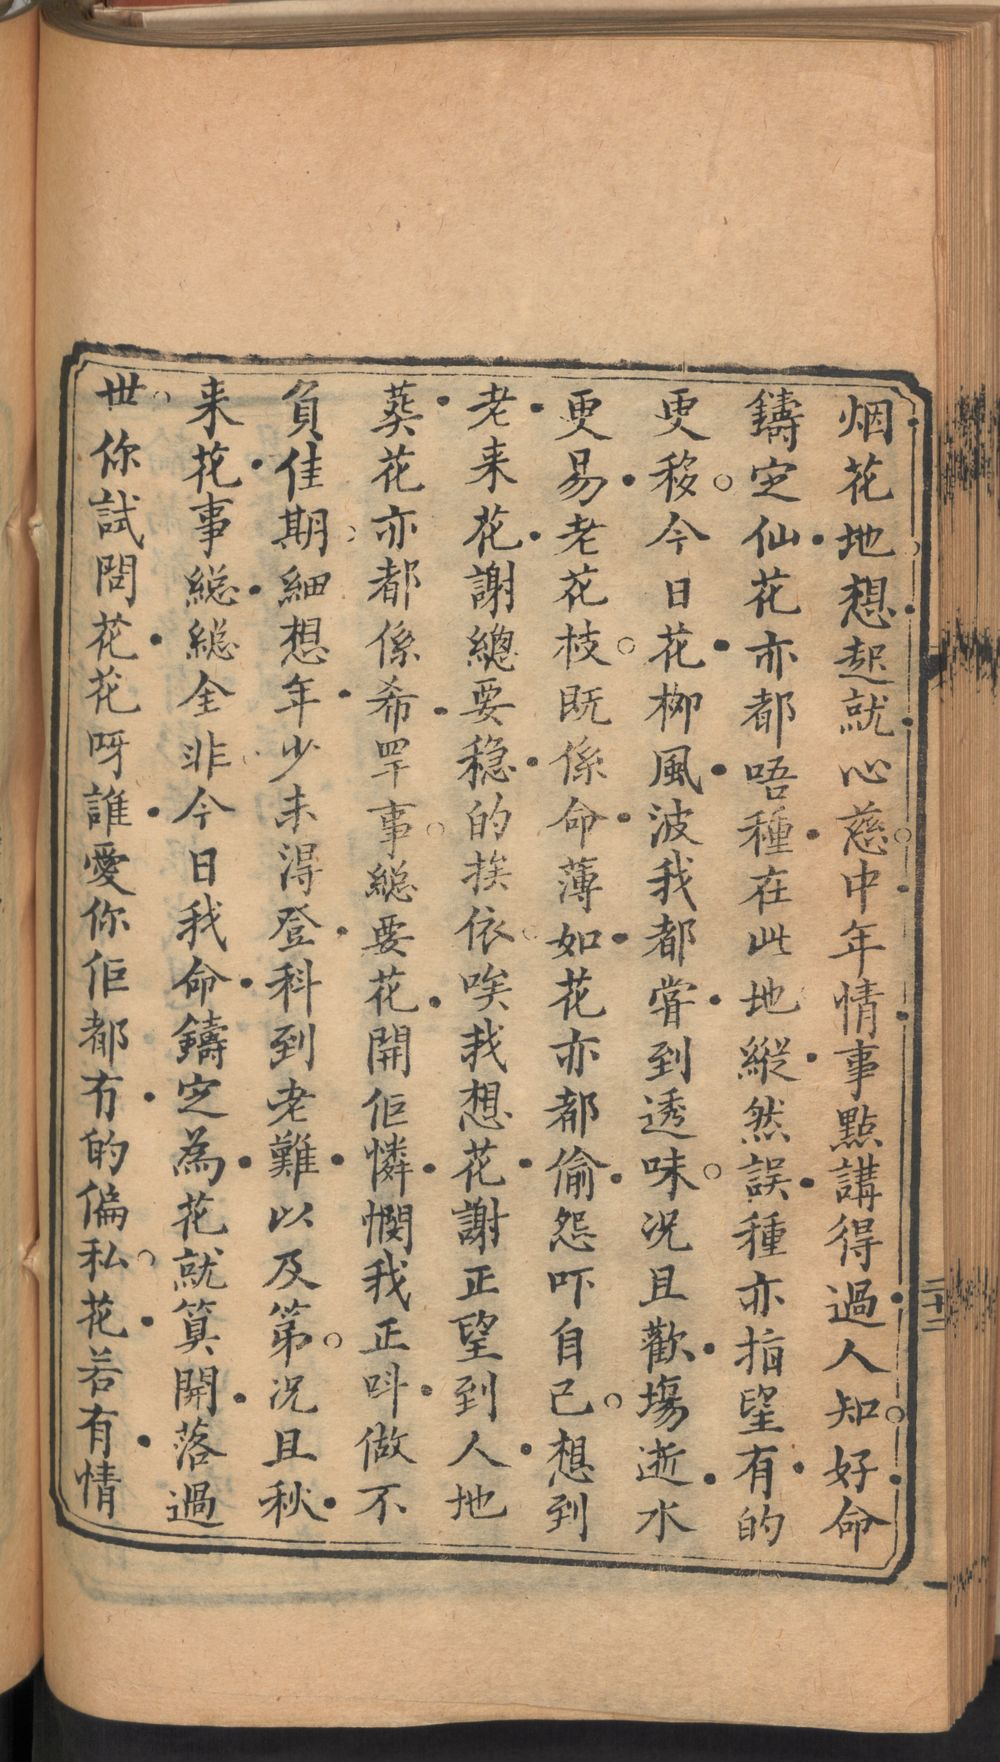 烟花地想起就心慈中年情事點講得過人知好命
鑄定仙花亦都唔種在此地縱然誤種亦指望有的
更移今日花柳風波我都嘗到透味况且歡塲逝水
更易老花枝既係命薄如花亦都偷怨吓自己想到
老来花謝總要穩的挨依唉我想花謝正望到人地
葬花亦都係希罕事縂要花開佢憐憫我正呌做不
負佳期細想年少未得登科到老難以及第况且秋
来花事縂縂全非今日我命鑄定為花就算開落過
世你試問花花呀誰愛你佢都冇的偏私花若有情
二十二